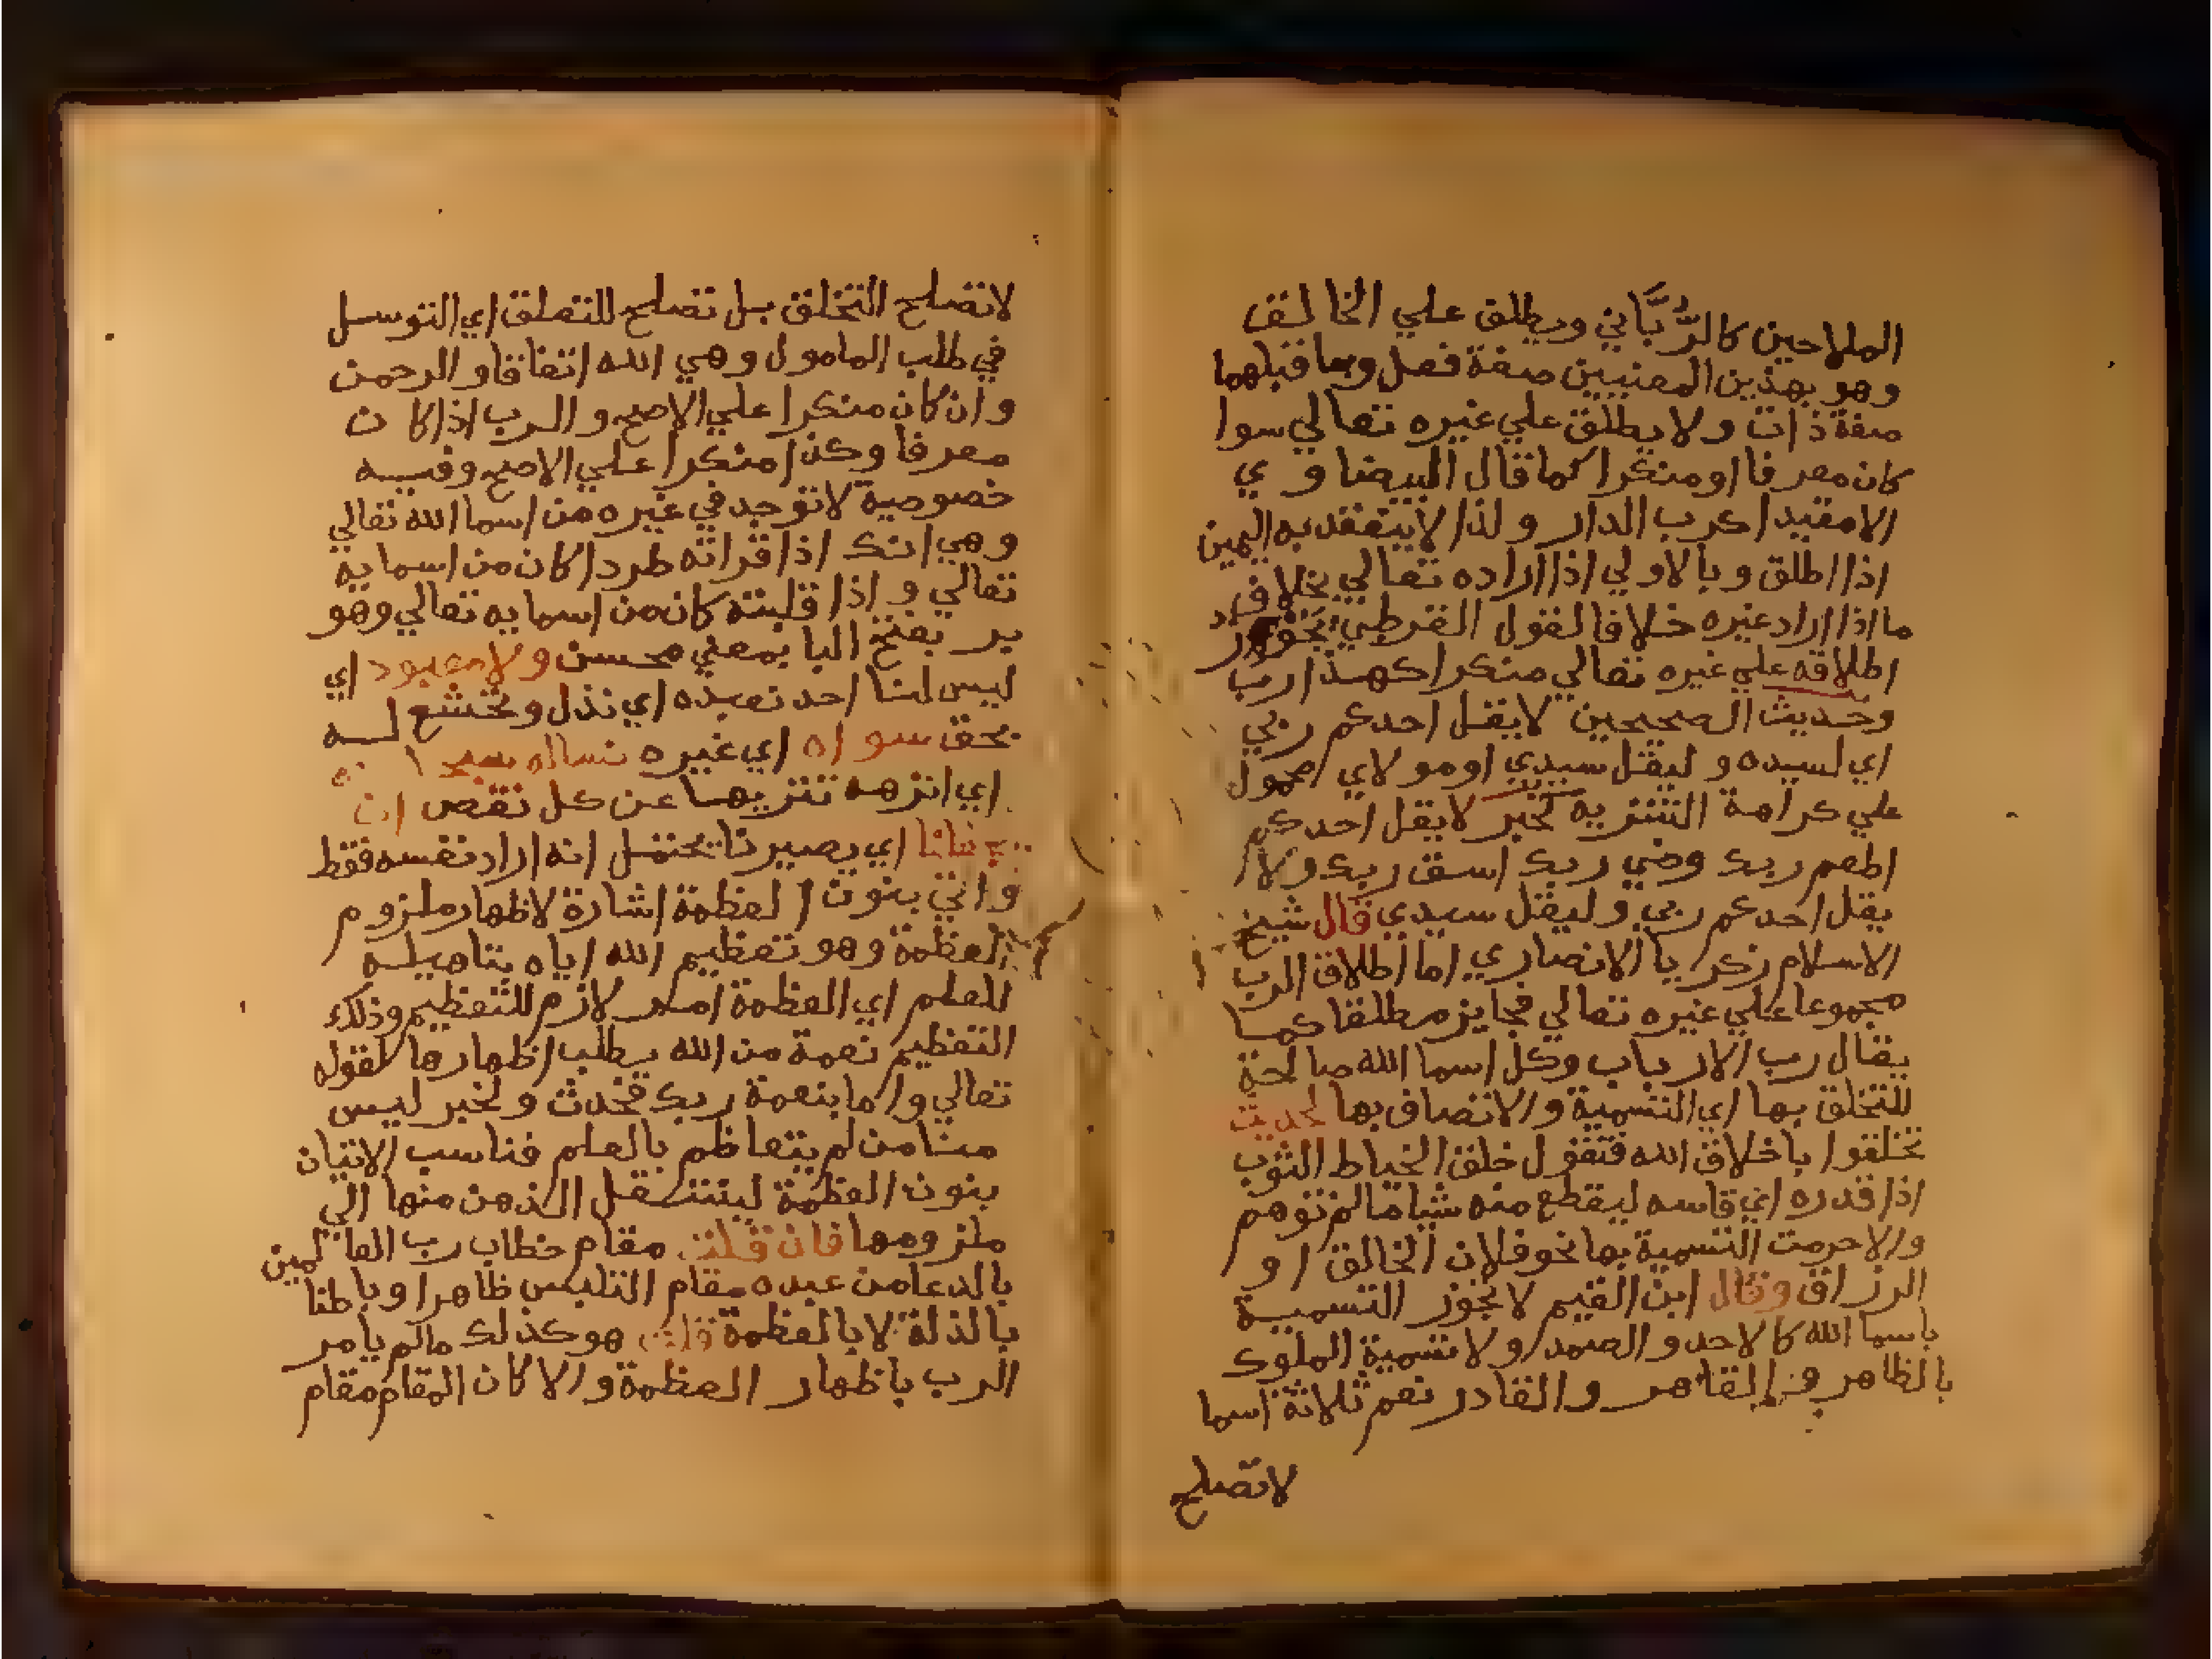 الملاحين كالرُّبَّاني ويطلق علي الخالق
وهو بهذين المعنيين صفة فعل وبما قبلهما
صفة ذات ولا يطلق علي غيره تعالي سوا
كان معرفا او منكرا كما قال البيضاوي
الا مقيدا كرب الدار ولذا لا ينعقد به اليمين
اذا اطلق وبالاولي اذا اراده تعالي بخلاف
ما اذا اراد غيره خلافا لقول القرطبي
اطلاقه علي غيره تعالي منكرا كهذا رب
وحديث الصحيحين لا يقل احدكم ربي
اي لسيده وليقل سيدي او مولاي محمول
علي كراهة التنزيه كخبر لا يقل احدكم
اطعم ربك وضي ربك اسق ربك ولا
يقل احدكم ربي وليقل سيدي قال شيخ
الاسلام زكريا الانصاري اما اطلاق الرب
مجموعا علي غيره تعالي فجايز مطلقا كما
يقال رب الارباب وكل اسما الله صالحة
للتخلق بها اي التسمية والاتصاف بها لحديث
تخلقوا باخلاق الله فتقول خلق الخياط الثوب
اذا قدره اي قاسه ليقطع منه شيا ما لم توهم
والا حرمت التسمية بها نحو فلان الخالق او
الرزاق وقال ابن القيم لا تجوز التسمية
باسما الله كالاحد والصمد ولا تسمية الملوك
بالظاهر و القاهر والقادر نعم ثلاثة اسما
لا تصلح
لا تصلح التخلق بل تصلح للتعلق اي التوسل
في طلب المامول وهي الله اتفاقا والرحمن
وان كان منكرا علي الاصح والرب اذا كان
معرفا وكذا منكرا علي الاصح وفيه
خصوصية لا توجد في غيره من اسما الله تعالي
وهي انك اذا قراته طردا كان من اسمايه
تعالي واذا قلبته كان من اسمايه تعالي وهو
بر بفتح البا بمعني محسن ولا معبود اي
ليس لنا احد نعبده اي نذل ونخشع له
بحق سواه اي غيره نساله سبحانه
اي انزهه تنزيها عن كل نقص ان
يجعلنا اي يصيرنا يحتمل انه اراد نفسه فقط
واتي بنون العظمة اشارة لاظهار ملزوم
العظمة وهو تعظيم الله اياه بتاهيله
للعلم اي العظمة امر لازم للتعظيم وذلك
التعظيم نعمة من الله يطلب اظهارها لقوله
تعالي واما بنعمة ربك فحدث ولخبر ليس
منا من لم يتعاظم بالعلم فناسب الاتيان
بنون العظمة لينتقل الذهن منها الي
ملزومها فان قلت مقام خطاب رب العالمين
بالدعا من عبده مقام التلبس ظاهرا وباطنا
بالذلة لا بالعظمة قلت هو كذلك ما لم يامر
الرب باظهار العظمة والا كان المقام مقام